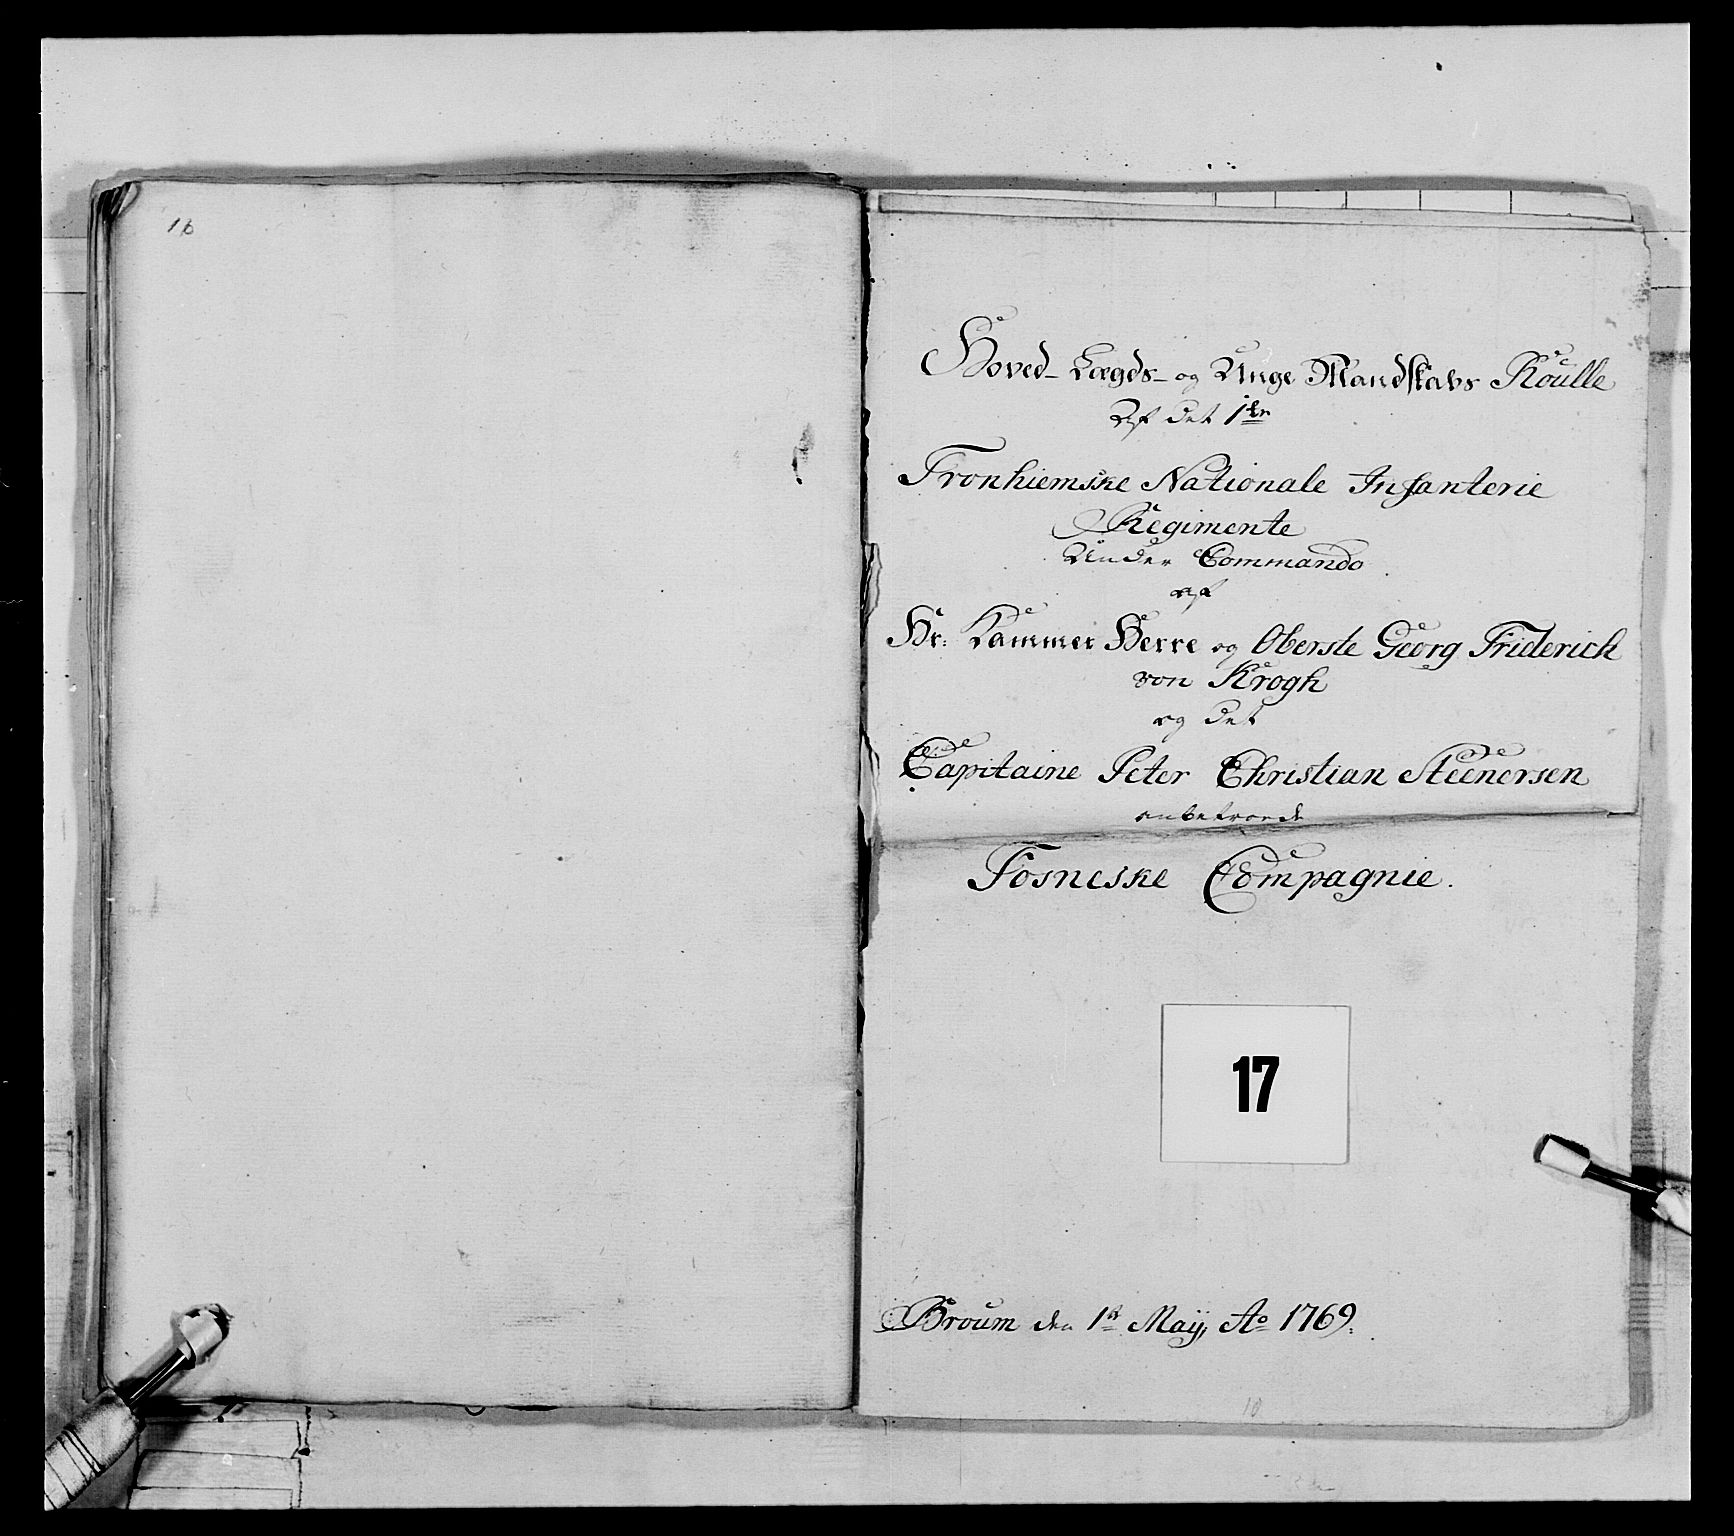 16
Hoved- Lægds- og Unge Mandskabs Roulle
Af det 1ste
Tronhiemske Nationale Infanterie
Regimente
Under Commando
af
Hr: Kammer Herre og Oberste Georg Friderich
von Krogh
og det
Capitaine Peter Christian Steenersen
anbetroede
Fosneske Compagnie.
17
Broum den 1st Maÿ, Ao 1769.
10